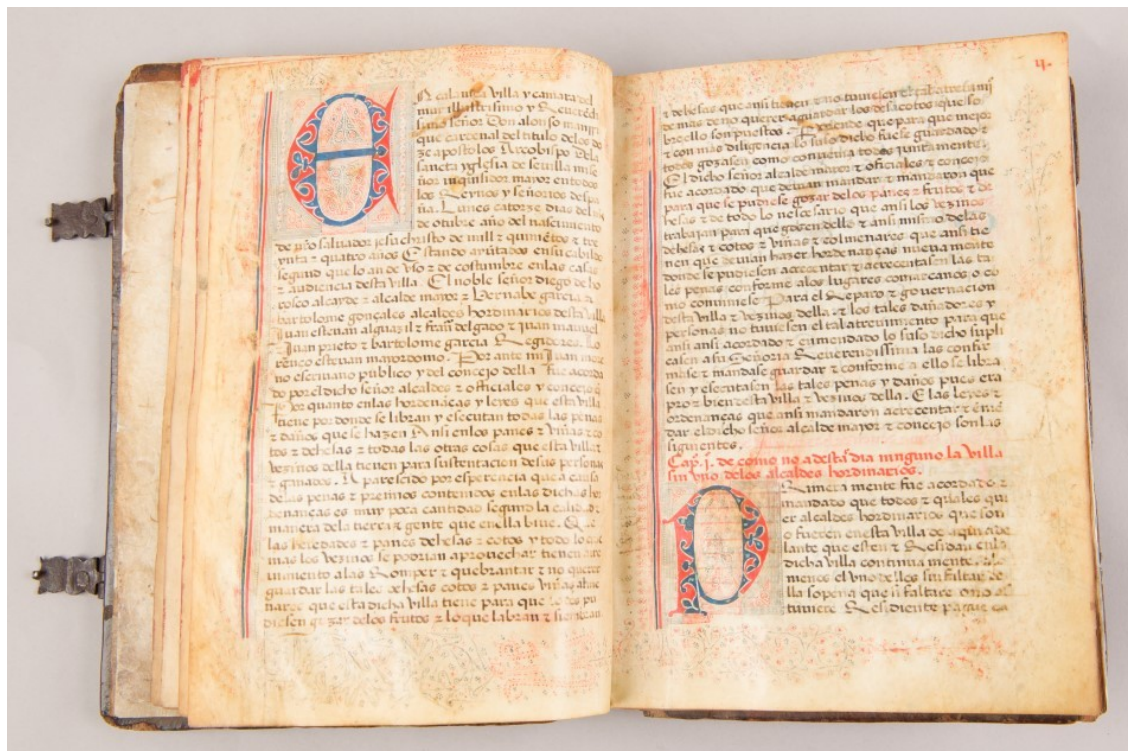 En la nuestra villa y camara del
muy illustrissimo y Reverendi
ssimo señor Don alonso manrri
que cardenal del titulo delos do
ze apostolos Arcobispo dela
sancta yglesia de sevilla mi se
ñor inquisidor mayor en todos
los Reynos y señorios despa
ña. Lunes catorze dias del mes
de otubre año del nascimiento
de nro salvador jesu christo de mill z quinietos z tre
ynta z quatro años Estando ayutados en su cabildo
segund que lo an de vso z de costumbre enlas casas
z audiencia desta villa. El noble señor diego de ho
rosco alcayde z alcalde mayor z Bernabe garcia z
bartolome gonçales alcaldes hordinarios desta villa
Juan estevan alguazil z franco delgado z juan manuel
Juan prieto z bartolome garcia Regidores. Lo
renço estevan mayordomo. Por ante mi Juan more
no escrivano publico y del concejo della fue acorda
do por el dicho señor alcaldes z officiales y concejo q
Por quanto enlas hordenãças y leyes que esta villa
tiene por donde se libran y esecutan todas las penas
z daños que se hazen Ansi enlos panes z viñas z co
tos z dehesas z todas las otras cosas que esta villa z
vezinos della tienen para sustentacion desus personas
z ganados. A parescido por esperencia que a causa
delas penas z premios contenidos enlas dichas hor
denanças es muy poca cantidad segund la calidad z
manera dela tierra z gente que enella bive. Que
las heredades z panes dehesas z cotos z todo lo que
mas los vezinos se podrian aprovechar tienen atre
vimiento alas Romper z quebrantar z no querer
guardar las tales dehesas cotos z panes viñas z hue
nares que esta dicha villa tiene para que se dos pu
diesen gozar delos frutos z lo que labran z siembran
4.
z dehesas que ansi tienen z no tuviesen el tal atrevimi
z demas de no querer aguardar los desacotos que so
brello son puestos. Por ende que para que mejor
z con mas diligencia lo suso dicho fuese guardado z
todos gozasen como convenia todos juntamente
El dicho señor alcalde mayor z oficiales z concejo
fue acordado que devian mandar z mandaron que
para que se pudiese gozar delos panes z frutos z de
hesas z de todo lo nescesario que ansi los vezinos
trabajan para que gosen dello z ansi mismo delas
dehesas z cotos z viñas z colmenares que ansi tie
nen que devian hazer hordenanças nueva mente
donde le pudiesen acrecentar z acrecentasen las ta
les penas conforme alos lugares comarcanos o co
mo conviniese Para el Reparo z governacion
desta villa z vezinos della. z los tales dañadores y
personas no tuviesen el tal atrevimiento para que
ansi ansi acordado z enmendado lo suso dicho supli
casen a su Señoria Reverendissima las confir
mase z mandase guardar z conforme a ello se libra
sen y esecutasen las tales penas y daños pues era
pro z bien desta villa z vezinos della. E las leyes z
ordenanças que ansi mandaron acrecentar z eme
dar el dicho señor alcalde mayor z concejo son las
siguientes.
Cap. j. de como no a destar dia ninguno la villa
sin vno delos alcaldes hordinarios.
PRimera mente fue acordado z
mandado que todos z quales qui
er alcaldes hordinarios que son
o fueren enesta villa de aqui ade
lante que esten z Residan enla
dicha villa continua mente. a lo
menos el vno dellos sin faltar de
lla so pena que si faltare o no e
tuviere Residiente pague ca